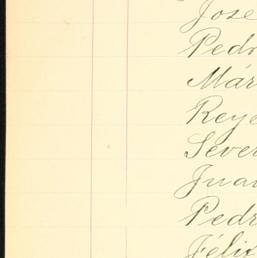 Jose
Pedr
Már
Reye
Sever
Juan
Pedr
Félix